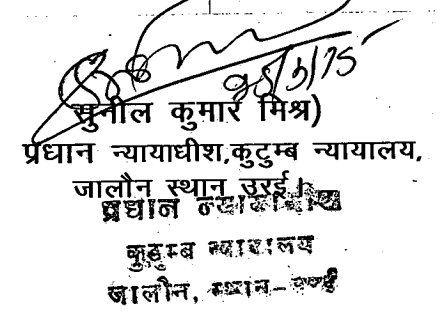 सुनील कुमार मिश्र)
प्रधान न्यायाधीश,कुटुम्ब न्यायालय,
जालौन स्थान उरई।
प्रधान न्यायाधीश
कुटुम्ब न्यायालय
जालौन, स्थान-उरई